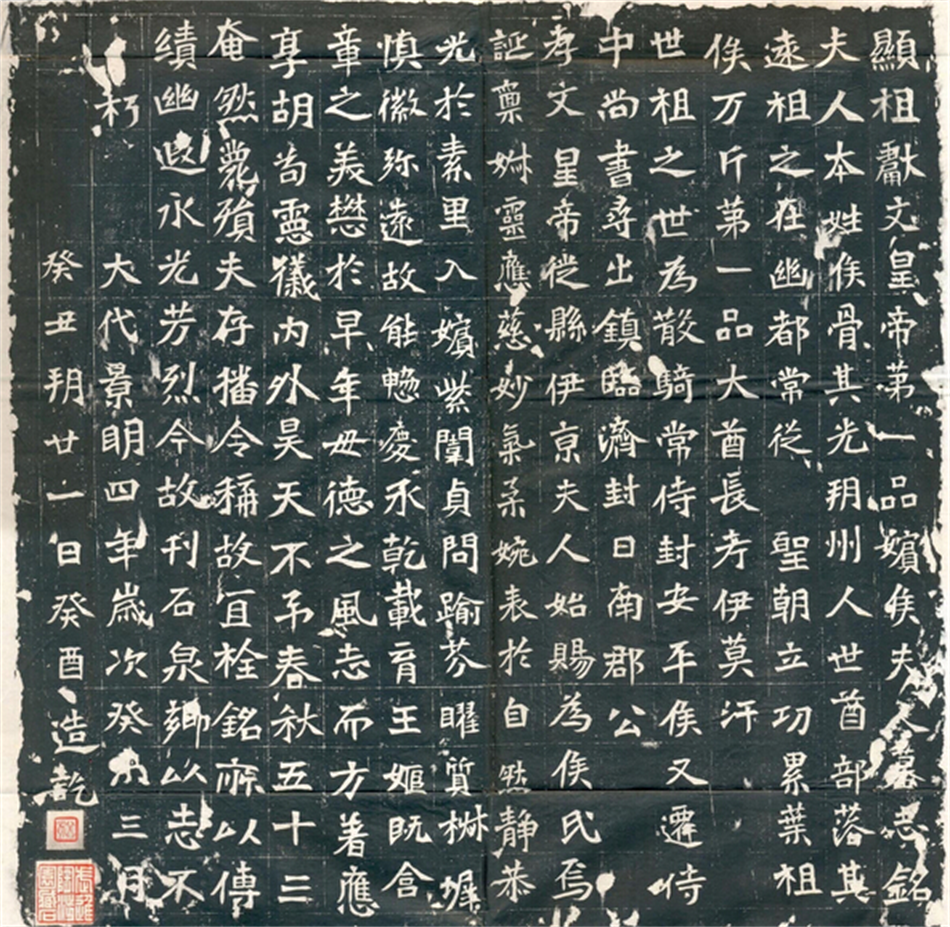 顯祖獻文皇帝第一品嬪侯夫人墓志銘
夫人本姓侯骨其先朔州人世酋部落其
遠祖之在幽都常從 聖朝立功累葉祖
侯万斤第一品大酋長考伊莫汗
世祖之世為散騎常侍封安平侯又遷侍
中尚書尋出鎮臨濟封日南郡公
孝文皇帝徙縣伊京夫人始賜為侯氏焉
誕稟姝靈應慈妙氣柔婉表於自然靜恭
光於素里入嬪紫闈貞問踰芬曜質椒墀
慎徽弥遠故能懋慶承乾載育王姬既含
章之美懋於早年毋德之風志而方著應
享胡耇靈儀內外昊天不弔春秋五十三
奄然薨殞夫存播令稱故宜栓銘寐以傳
績幽遐永光芳烈今故刊石泉鄉以志不
朽 大代景明四年歲次癸未三月
癸丑朔廿一日癸酉造訖